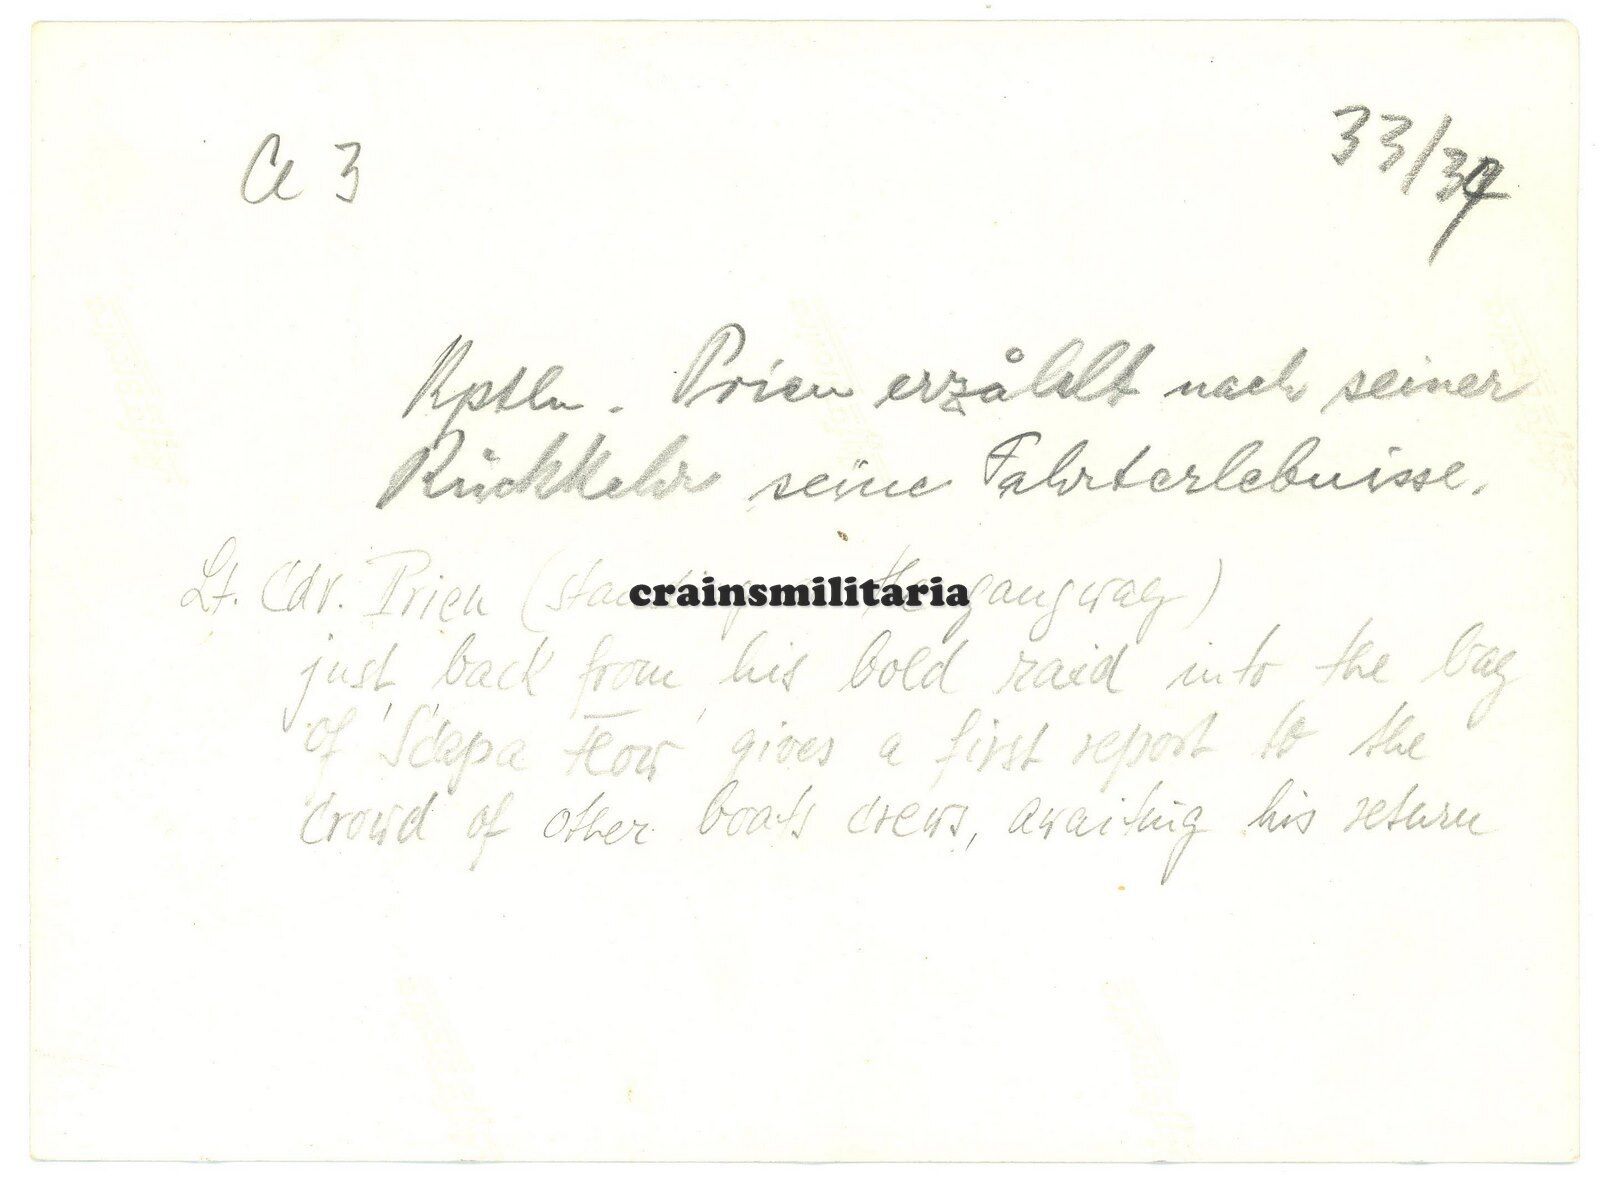 a 3
33/34
Kptln. Prien erzählt nach seiner
Rückkehr seine Fahrterlebnisse.
Lt. Cdr. Prien (standing the gangway)
crainsmilitaria
just back from his bold raid into the bay
of 'Scapa Flow' gives a first report to the
crowd of other boats crews, awaiting his return